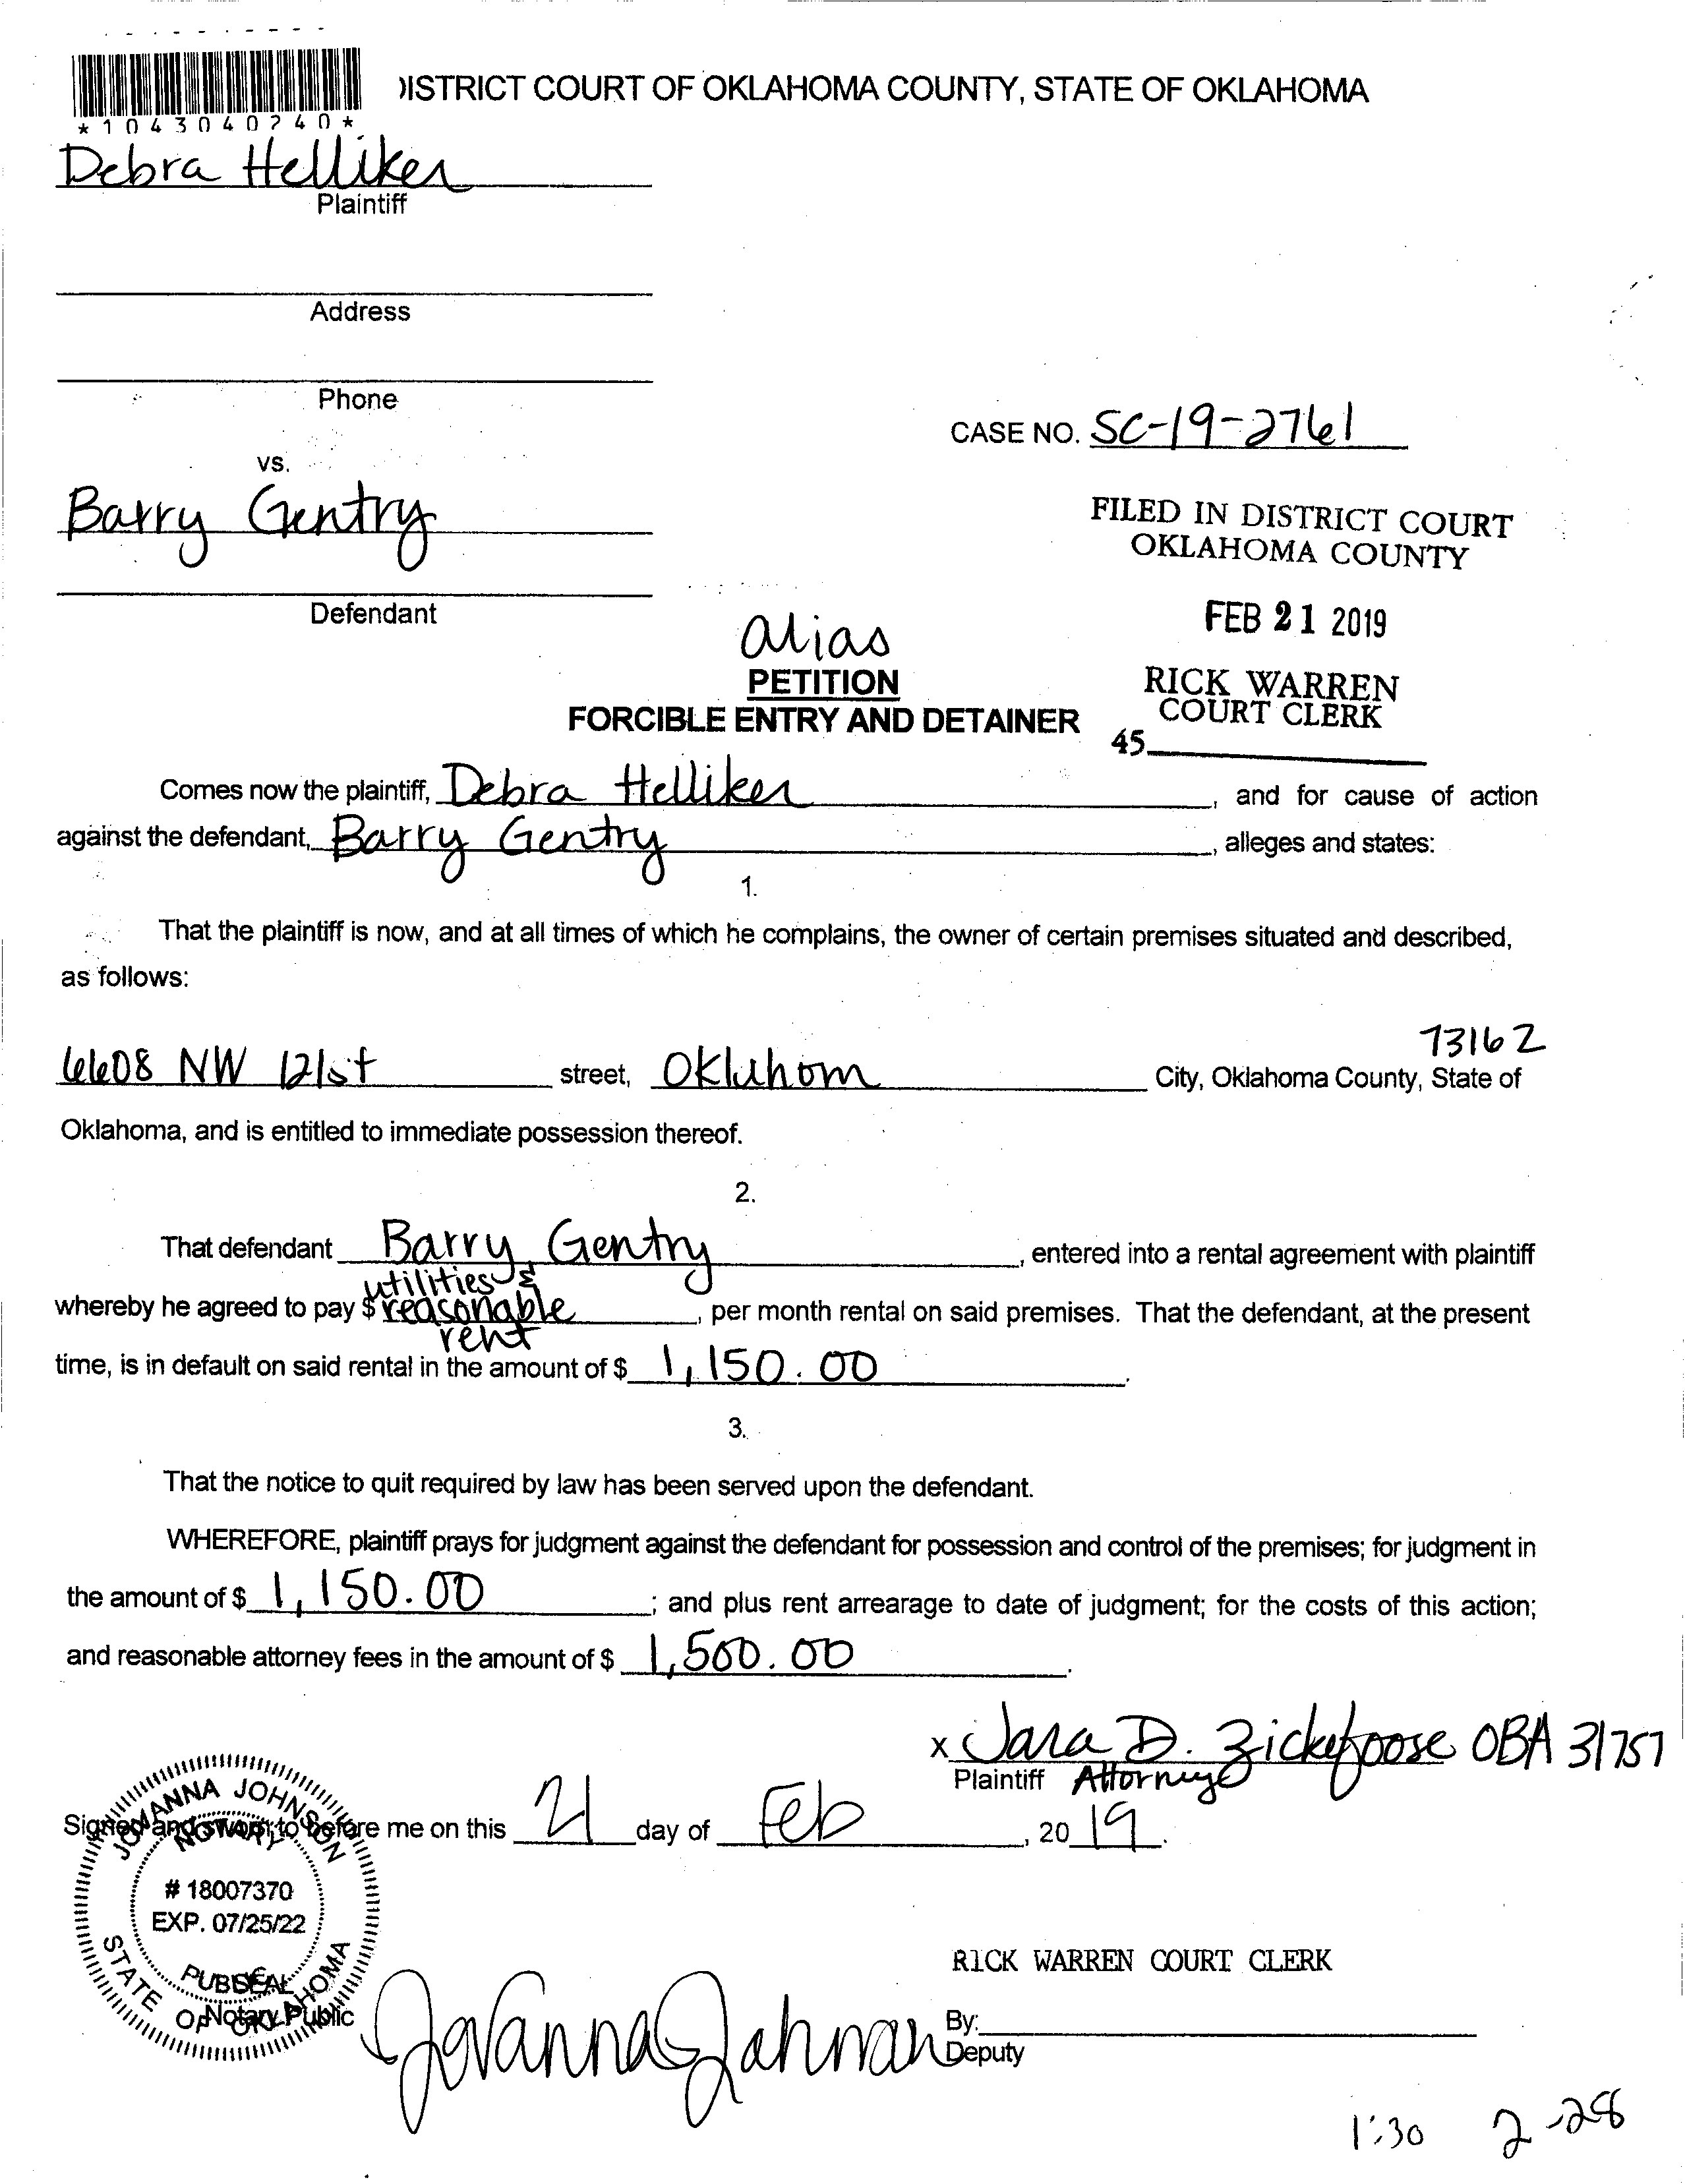 )ISTRICT COURT OF OKLAHOMA COUNTY, STATE OF OKLAHOMA
*1043040240*
Debra Helliker
Plaintiff
Address
Phone
CASE NO. SC-19-2761
vs.
Barry Gentry
FILED IN DISTRICT COURT
OKLAHOMA COUNTY
Defendant
FEB 21 2019
alias
PETITION
RICK WARREN
COURT CLERK
FORCIBLE ENTRY AND DETAINER
45
Comes now the plaintiff, Debra Helliker, and for cause of action
against the defendant, Barry Gentry, alleges and states:
1.
That the plaintiff is now, and at all times of which he complains, the owner of certain premises situated and described,
as follows:
73162
6608 NW 121st street, Oklahom City, Oklahoma County, State of
Oklahoma, and is entitled to immediate possession thereof.
2.
That defendant Barry Gentry, entered into a rental agreement with plaintiff
utilities &
whereby he agreed to pay $ reasonable, per month rental on said premises. That the defendant, at the present
rent
time, is in default on said rental in the amount of $ 1,150.00.
3.
That the notice to quit required by law has been served upon the defendant.
WHEREFORE, plaintiff prays for judgment against the defendant for possession and control of the premises; for judgment in
the amount of $ 1,150.00; and plus rent arrearage to date of judgment; for the costs of this action;
and reasonable attorney fees in the amount of $ 1,500.00.
x Jara D. Zickefoose OBA 31757
Plaintiff Attorney
Signed and sworn to before me on this 21 day of Feb, 2019.
JOVANNA JOHNSON
NOTARY
# 18007370
EXP. 07/25/22
PUBLIC
STATE OF OKLAHOMA
SEAL
RICK WARREN COURT CLERK
Notary Public
Jovanna Johnson
By:
Deputy
1:30 2-28